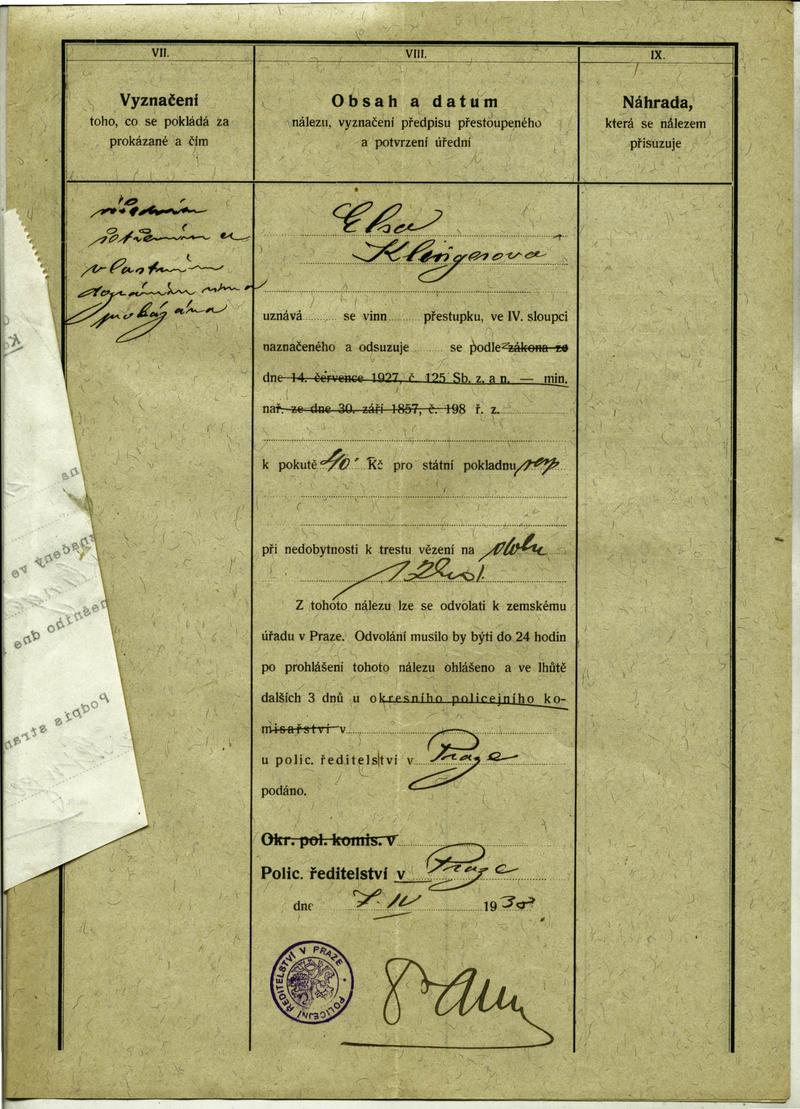 VII.
Vyznačení
toho, co se pokládá za
prokázané a čím
úředním
šetřením a
vlastním
doznáním
prokázána
VIII.
Obsah a datum
nálezu, vyznačení předpisu přestoupeného
a potvrzení úřední
Elsa
Klingerová
uznává se vinn přestupku, ve IV. sloupci
naznačeného a odsuzuje se podle zákona ze
dne 14. července 1927, č. 125 Sb. z. a n. — min.
nař. ze dne 30. září 1857, č. 198 ř. z.
k pokutě Kč pro státní pokladnu resp
při nedobytnosti k trestu vězení na dobu
Z tohoto nálezu lze se odvolati k zemskému
úřadu v Praze. Odvolání musilo by býti do 24 hodin
po prohlášení tohoto nálezu ohlášeno a ve lhůtě
dalších 3 dnů u okresního policejního ko-
misařství v
u polic. ředitelství v Praze
podáno.
Okr. pol. komis. v
Polic. ředitelství v Praze
dne 7. IV 1938
POLICEJNÍ ŘEDITELSTVÍ V PRAZE
IX.
Náhrada,
která se nálezem
přisuzuje
na
značený ve
dne
Podpis stran